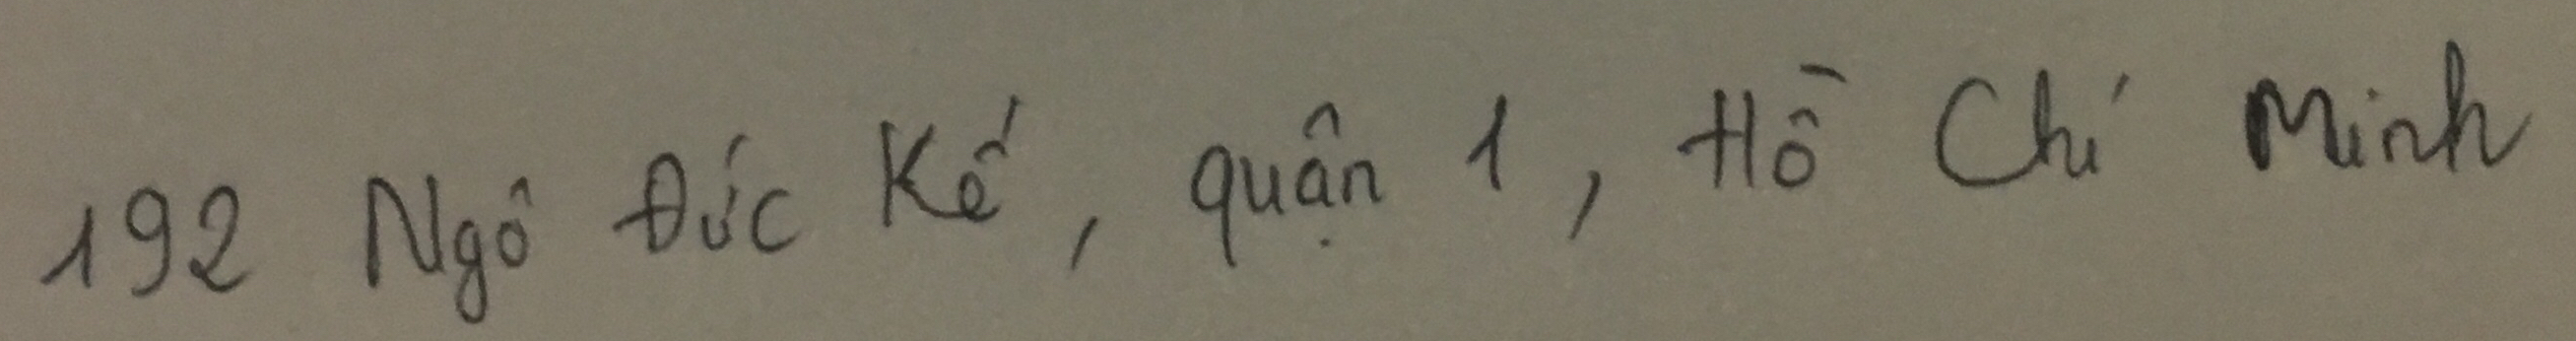 192 Ngô Đức Kế, quận 1, Hồ Chí Minh